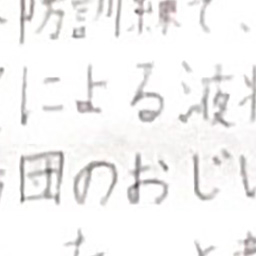 防訓練で、
による液
団のおじい